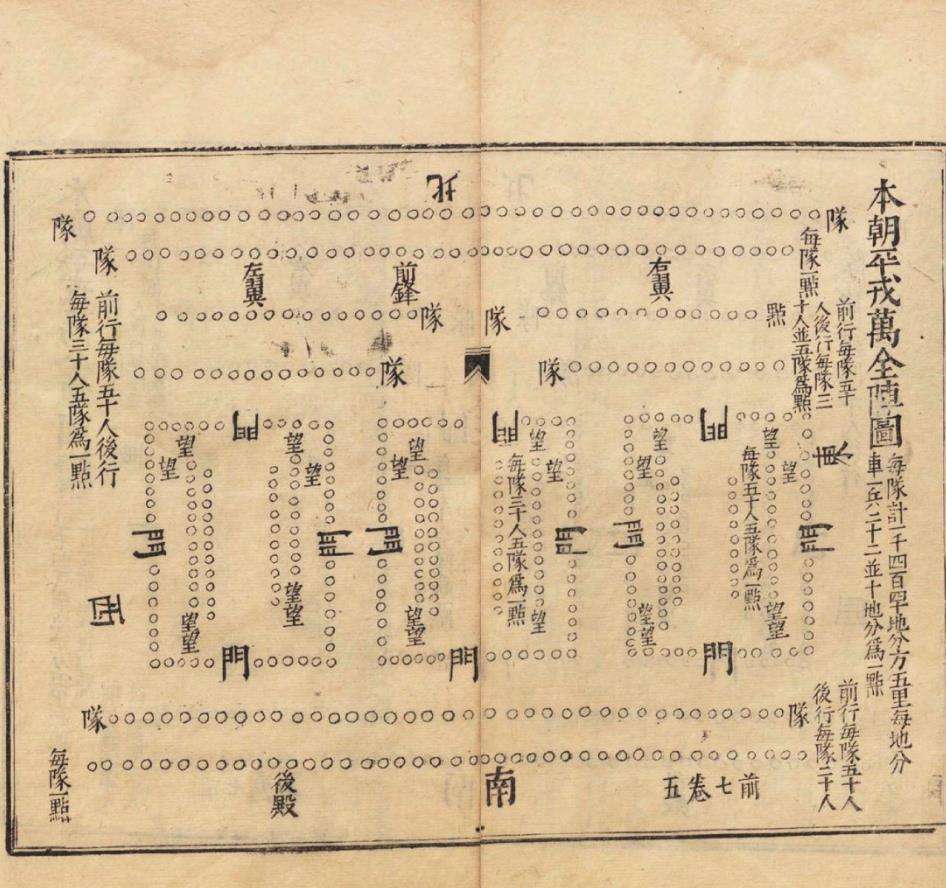 本朝平戎萬全陣圖
每隊計一千四百四十地分方五里每地分
車一兵二十二並十地分為一點
北
隊
隊
隊
前行每隊五十
人後行每隊三
十人並五隊為點
每隊一點
右翼
前鋒
左翼
點
隊
隊
隊
隊
隊
前行每隊五十人後行
每隊三十人五隊為一點
東
西
門
門
門
門
門
門
門
門
門
門
門
門
望
望
望望
每隊五十人五隊為一點
望
望
望望
望
望
望
每隊三十人五隊為一點
望
望
望望
望
望
望望
望
望
望望
前行每隊五十人
後行每隊二十人
隊
隊
每隊一點
後殿
南
前七卷五